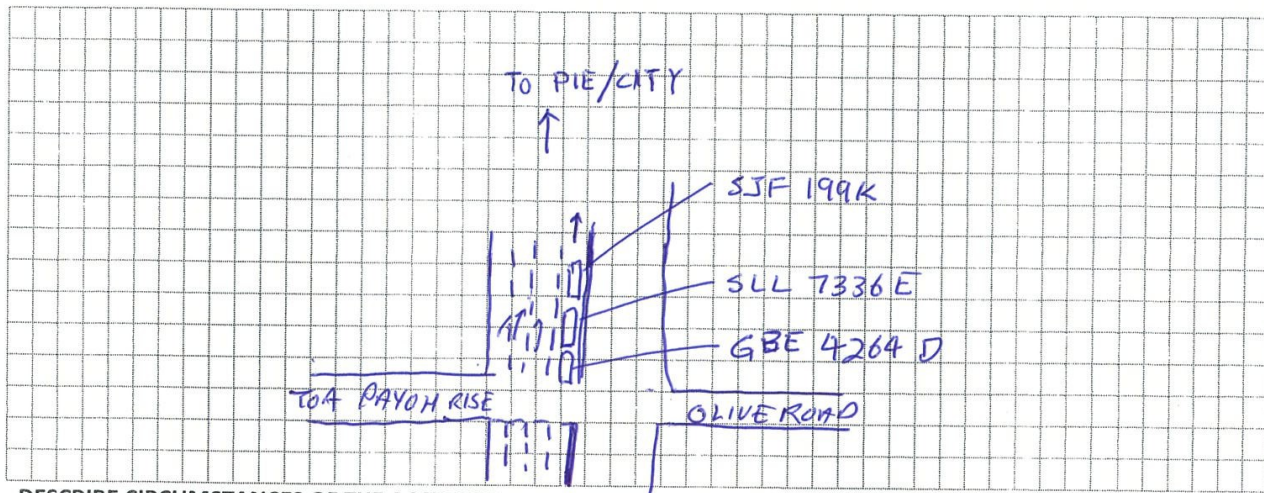 TO PIE/CITY
SJF 199K
SLL 7336E
GBE 4264 D
TOA PAYOH RISE
OLIVE ROAD